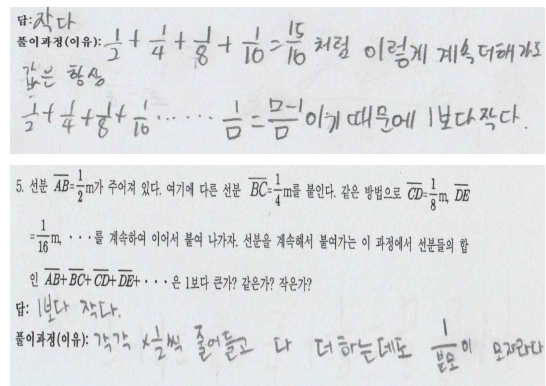 답: 작다
풀이과정(이유): 1/2 + 1/4 + 1/8 + 1/16 = 15/16 처럼 이렇게 계속 더해가도
값은 항상
1/2 + 1/4 + 1/8 + 1/16 ...... 1/□ = □-1/□ 이기 때문에 1보다 작다.
5. 선분 AB=1/2m가 주어져 있다. 여기에 다른 선분 BC=1/4m를 붙인다. 같은 방법으로 CD=1/8m, DE
=1/16m, ···를 계속하여 이어서 붙여 나가자. 선분을 계속해서 붙여가는 이 과정에서 선분들의 합
인 AB+BC+CD+DE+···은 1보다 큰가? 같은가? 작은가?
답: 1보다 작다.
풀이과정(이유): 각각 ×1/2씩 줄어들고 다 더하는데도 1/분모이 모자라다